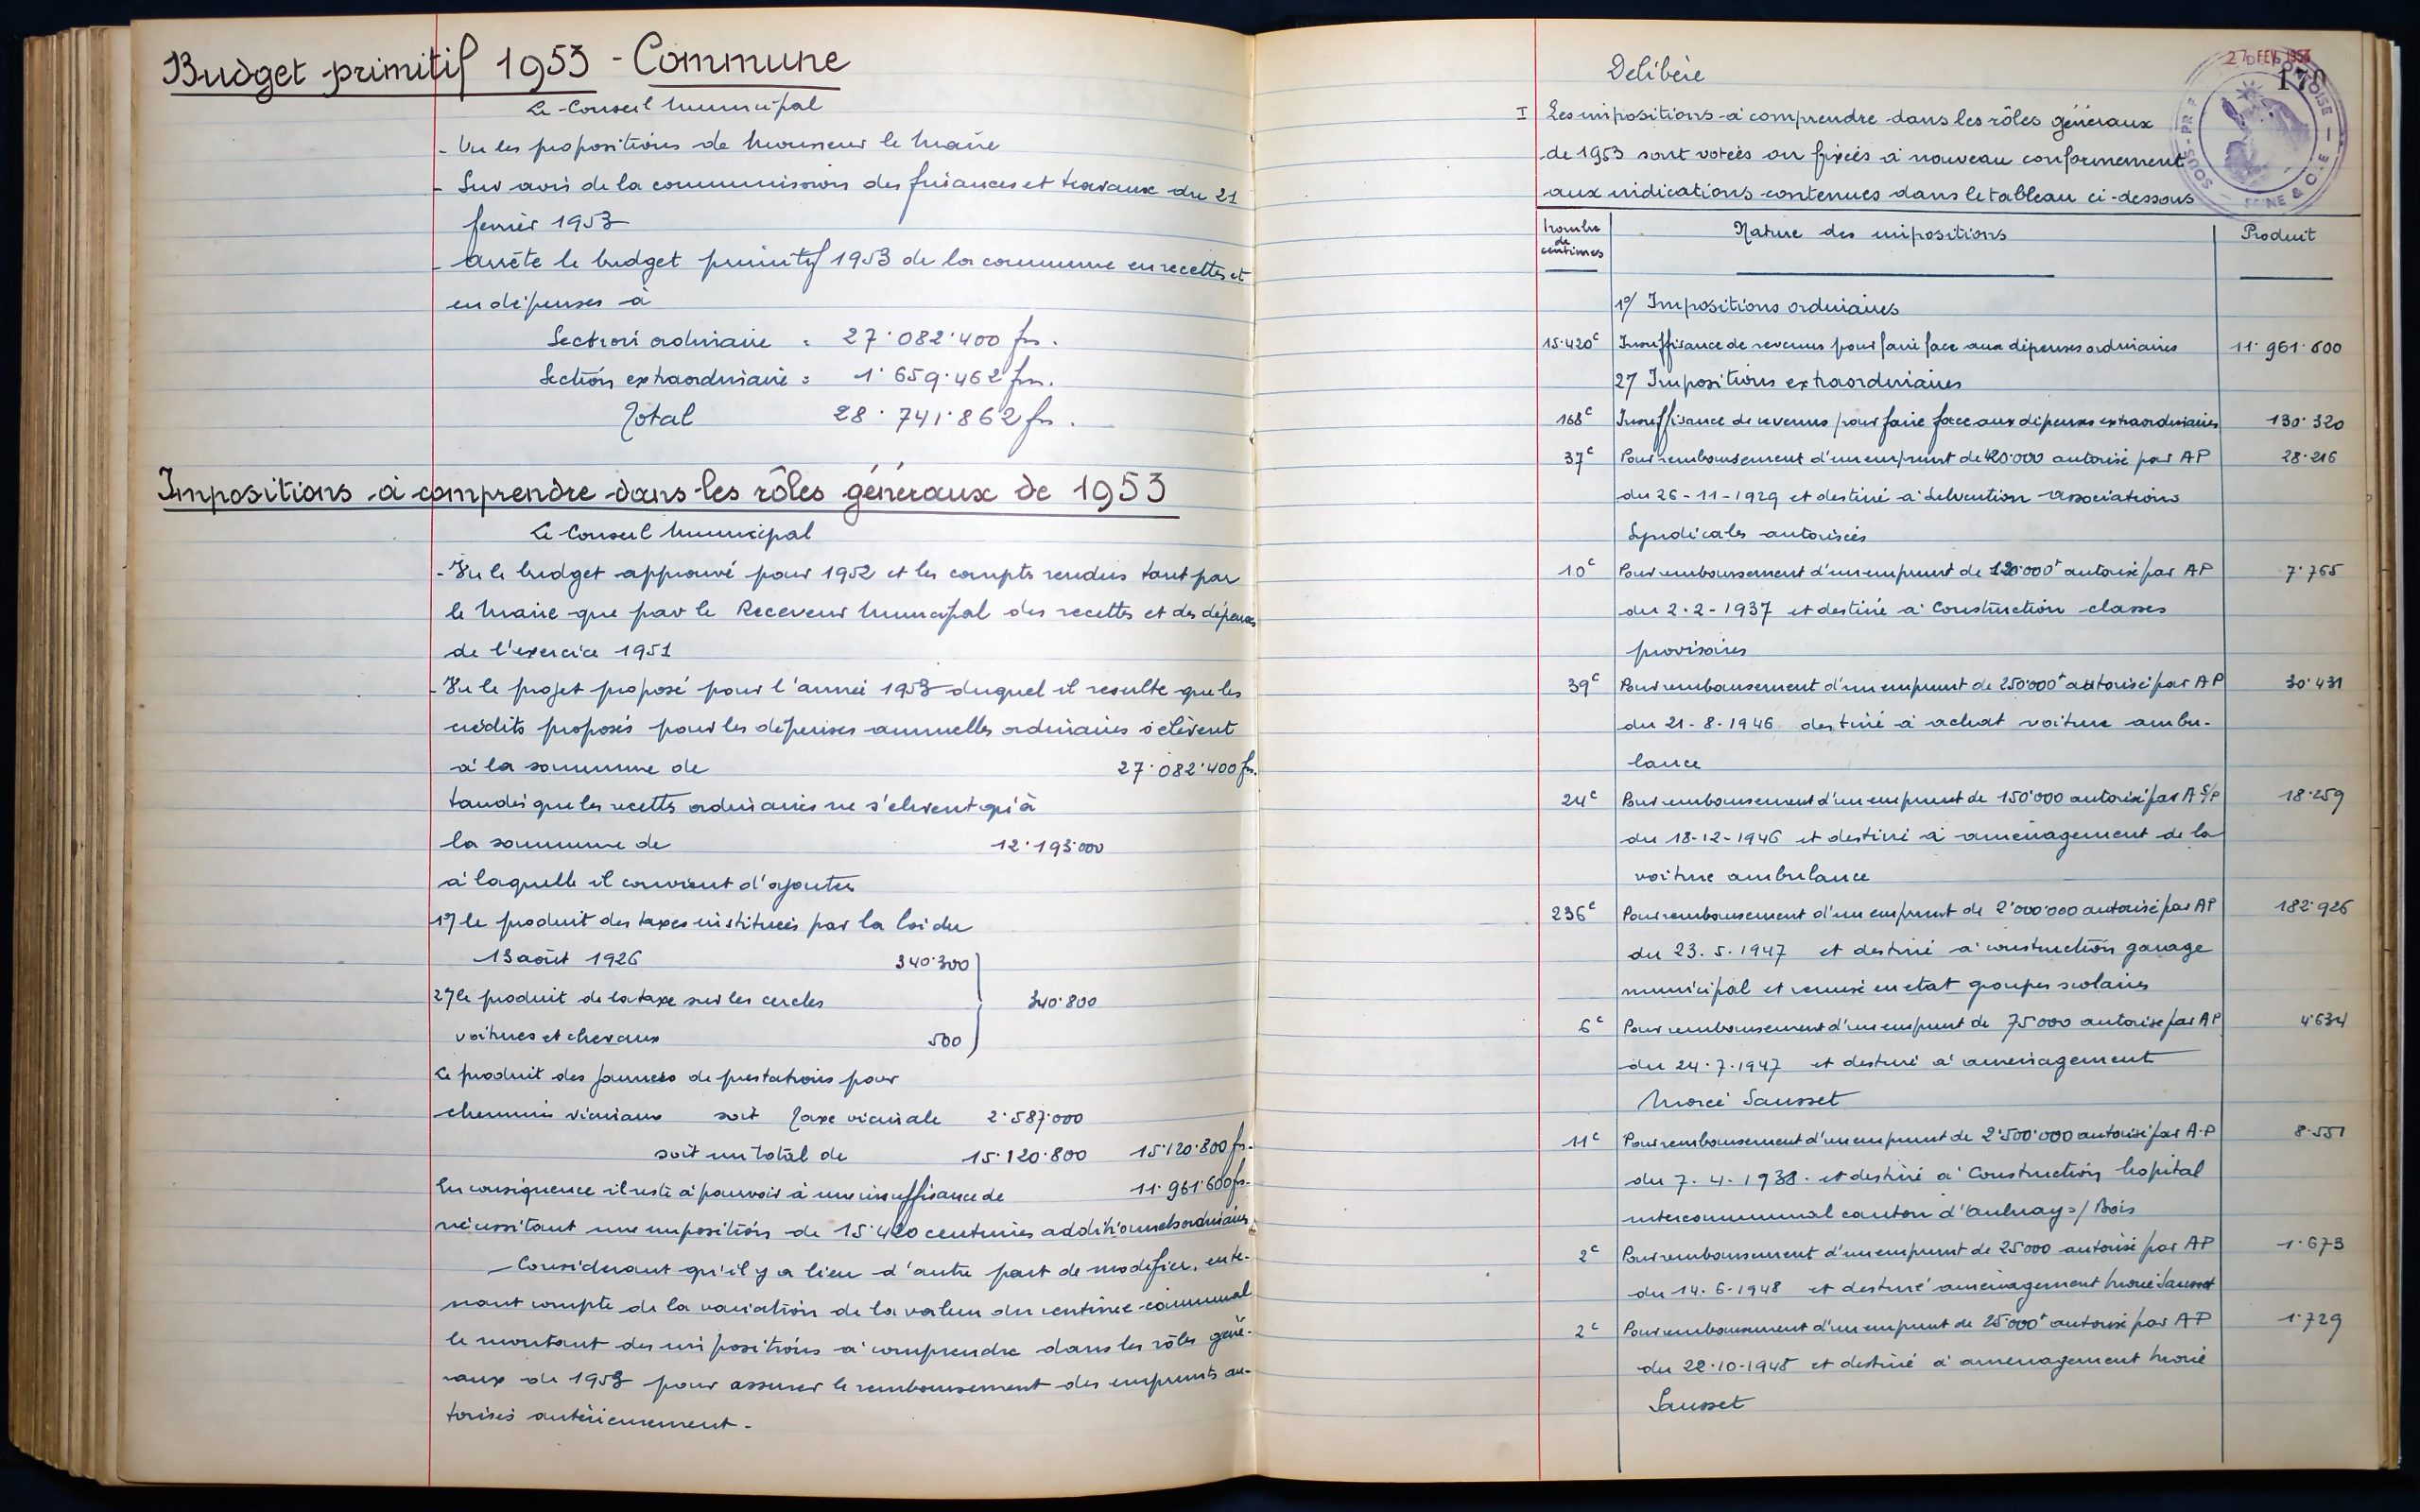 Budget primitif 1953 - Commune
Le Conseil Municipal
- Vu les propositions de Monsieur le Maire
- Sur avis de la commmission des finances et travaux du 21
fevrier 1953
- arrête le budget primitif 1953 de la commune en recettes et
en dépenses à
Section ordinaire : 27.082.400 frs.
Section extraordinaire : 1.659.462 frs.
Total 28.741.862 frs.
Impositions à comprendre dans les rôles généraux de 1953
Le Conseil Municipal
- Vu le budget approuvé pour 1952 et les compts rendus tant par
le Maire que par le Receveur Municipal des recettes et des dépenses
de l'exercice 1951
- Vu le projet proposé pour l'année 1953 duquel il resulte que les
crédits proposés pour les dépenses annuelles ordinaires s'élèvent
à la somme de 27.082.400 frs.
tandis que les recettes ordinaires ne s'elevent qu'à
la somme de 12.193.000
à laquelle il convient d'ajouter
1º/ le produit des taxes instituées par la loi du
13 août 1926 340.300
2º/ le produit de la taxe sur les cercles 340.800
voitures et chevaux 500
Le produit des journées de prestations pour
chemins vicinaux soit Taxe vicinale 2.587.000
soit un total de 15.120.800 15.120.800 frs.
En conséquence il reste à pourvoir à une insuffisance de 11.961.600 frs.
nécessitant une imposition de 15.420 centimes additionnels ordinaires
- Considerant qu'il y a lieu d'autre part de modifier, en te-
nant compte de la variation de la valeur du centime communal
le montant des impositions à comprendre dans les rôles géné-
raux de 1953 pour assurer le remboursement des emprunts au-
torisés antérieurement.
27 FEV. 1953
170
SOUS-PRÉF
DE PONTOISE
SEINE & OISE
Delibère
I Les impositions à comprendre dans les rôles généraux
de 1953 sont votées ou fixées à nouveau conformement
aux indications contenues dans le tableau ci-dessous
Nombre de centimes Nature des impositions Produit
1º/ Impositions ordinaires
15.420c Insuffisance de revenus pour faire face aux dépenses ordinaires 11.961.600
2º/ Impositions extraordinaires
168c Insuffisance de revenus pour faire face aux dépenses extraordinaires 130.320
37c Pour remboursement d'un emprunt de 420.000 autorisé par AP 28.216
du 26-11-1929 et destiné à Subvention associations
Syndicales autorisées
10c Pour remboursement d'un emprunt de 120.000f autorisé par AP 7.765
du 2.2-1937 et destiné à Construction classes
provisoires
39c Pour remboursement d'un emprunt de 250.000f autorisé par AP 30.431
du 21-8-1946 destiné à achat voiture ambu-
lance
24c Pour remboursement d'un emprunt de 150.000 autorisé par A S/P 18.259
du 18-12-1946 et destiné à aménagement de la
voiture ambulance
236c Pour remboursement d'un emprunt de 2.000.000 autorisé par AP 182.926
du 23.5.1947 et destiné à construction garage
municipal et remise en etat groupes scolaires
6c Pour remboursement d'un emprunt de 75.000 autorisé par AP 4.634
du 24.7.1947 et destiné à aménagement
Morée Sausset
11c Pour remboursement d'un emprunt de 2.500.000 autorisé par A.P 8.551
du 7.4.1938. et destiné à Construction hopital
intercommunal canton d'Aulnay s/ Bois
2c Pour remboursement d'un emprunt de 25.000 autorisé par AP 1.673
du 14.6-1948 et destiné aménagement Morée Sausset
2c Pour remboursement d'un emprunt de 25.000f autorisé par AP 1.729
du 22.10-1948 et destiné à aménagement Morée
Sausset